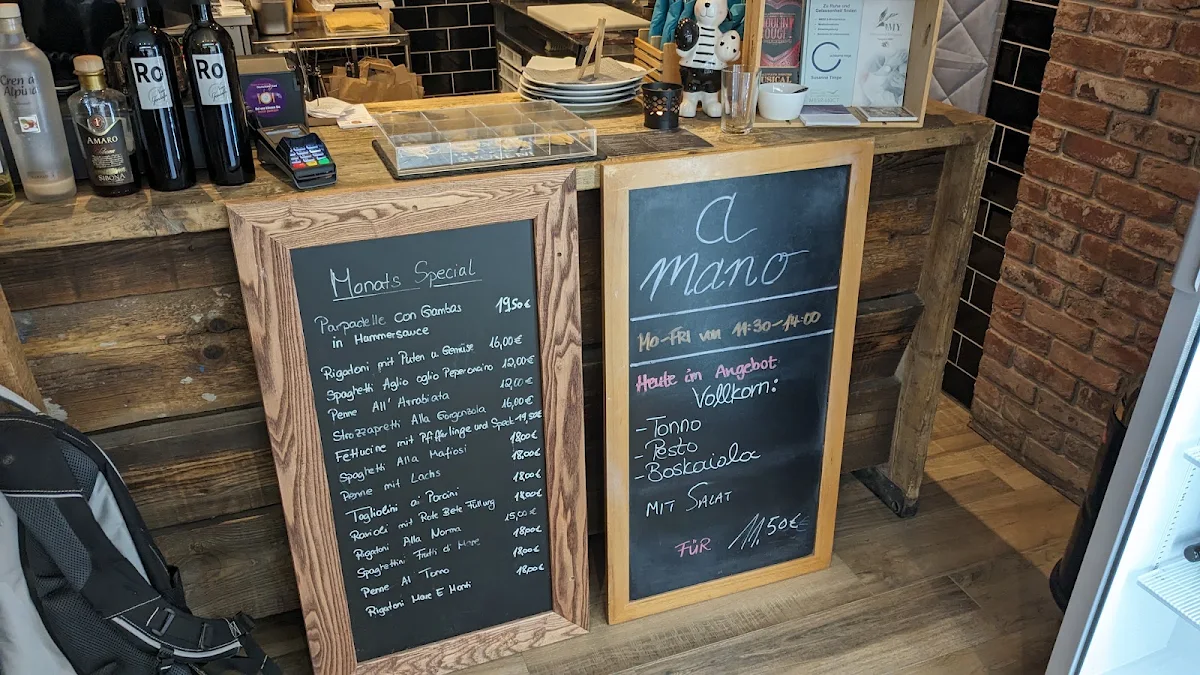 Cren
Alpina
AMARO
SIBONA
Ro
Ro
Monats Special
Parpadelle con Gambas 19,50€
in Hummersauce
Rigatoni mit Puten u Gemüse 16,00€
Spaghetti Aglio oglio Peperoncino 12,00€
Penne All' Arrabiata 12,00€
Strozzapretti Alla Gorgonzola 16,00€
Fettucine mit Pfifferlinge und Speck 19,50€
Spaghetti Alla Mafiosi 18,00€
Penne mit Lachs 18,00€
Tagliolini ai Porcini 18,00€
Ravioli mit Rote Bete Füllung 18,00€
Rigatoni Alla Norma 15,00€
Spaghettini Frutti d' Mare 18,00€
Penne Al Tonno 18,00€
Rigatoni Mare E Monti 18,00€
a
mano
Mo-Fri von 11:30-14:00
Heute im Angebot
Vollkorn:
- Tonno
- Pesto
- Boskaiola
MIT SALAT
FÜR 11,50€